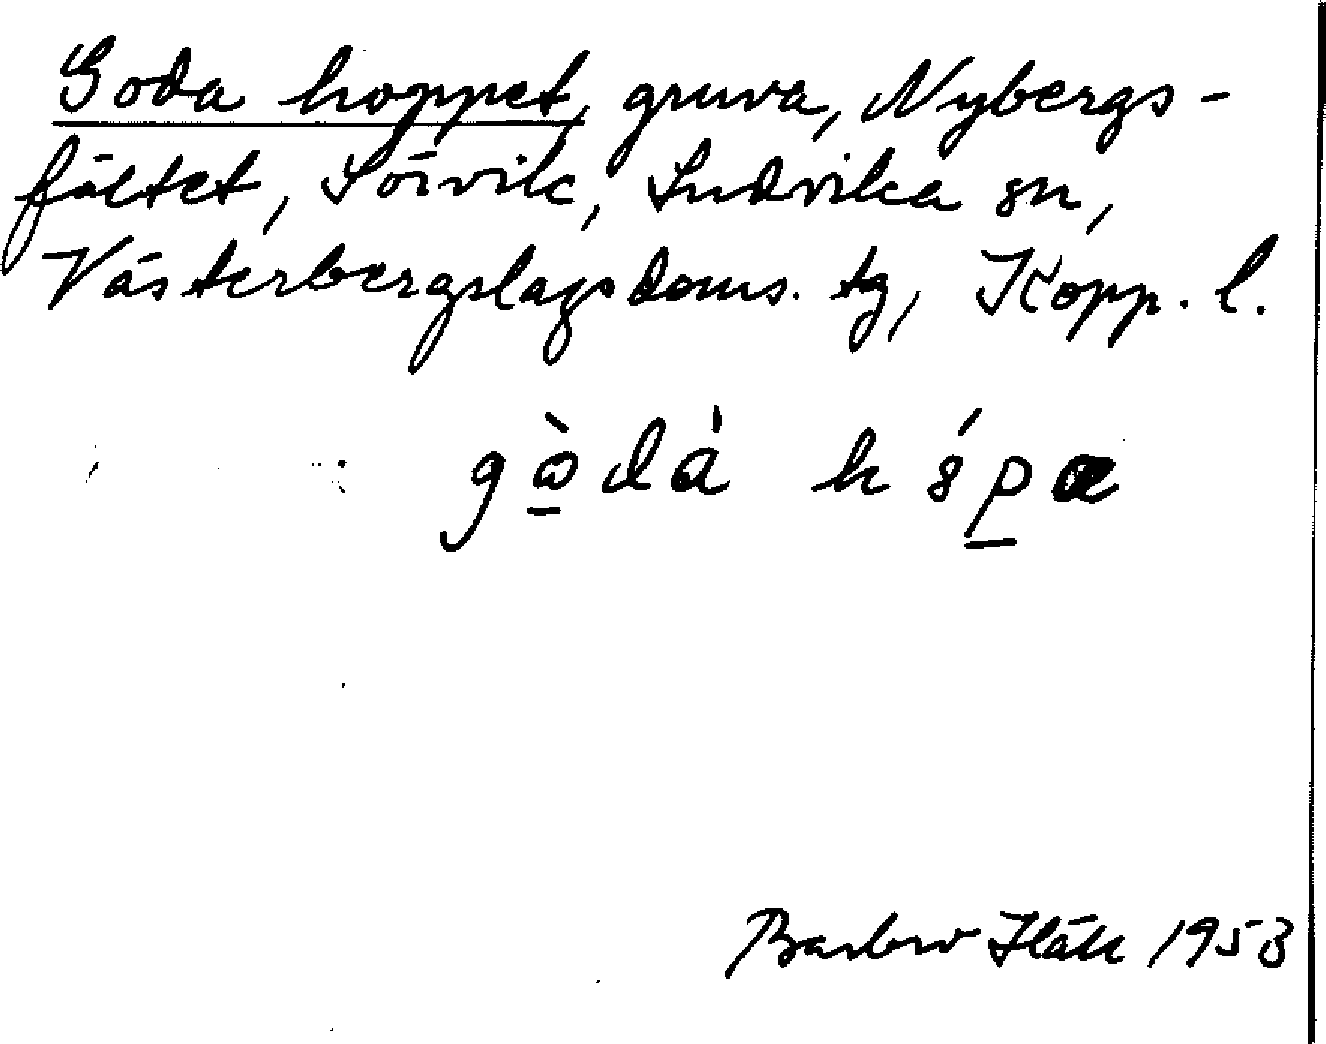 Goda hoppet, gruva, Nybergs-
fältet, Sörvik, Ludvika sn,
Västerbergslags doms. tg, Kopp. l.
gὼ̠dȧ hó̄p̠æ
1953